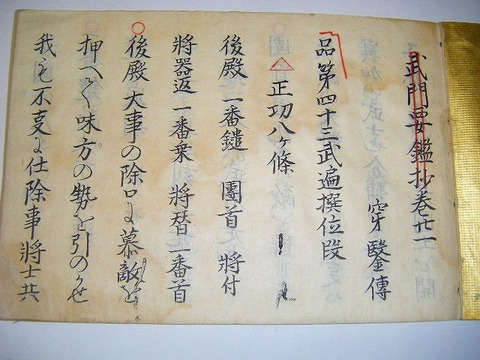 武門要鑑抄巻廿一
穿鑿傳
品第四十三武遍撰位段
△正功八ヶ條
後殿 一番鑓 團首 將付
將器返 一番乗 將替 一番首
○後殿ハ大事の除口に慕敵を
押へて味方の勢を引のかせ
我も不支に仕除事將士共